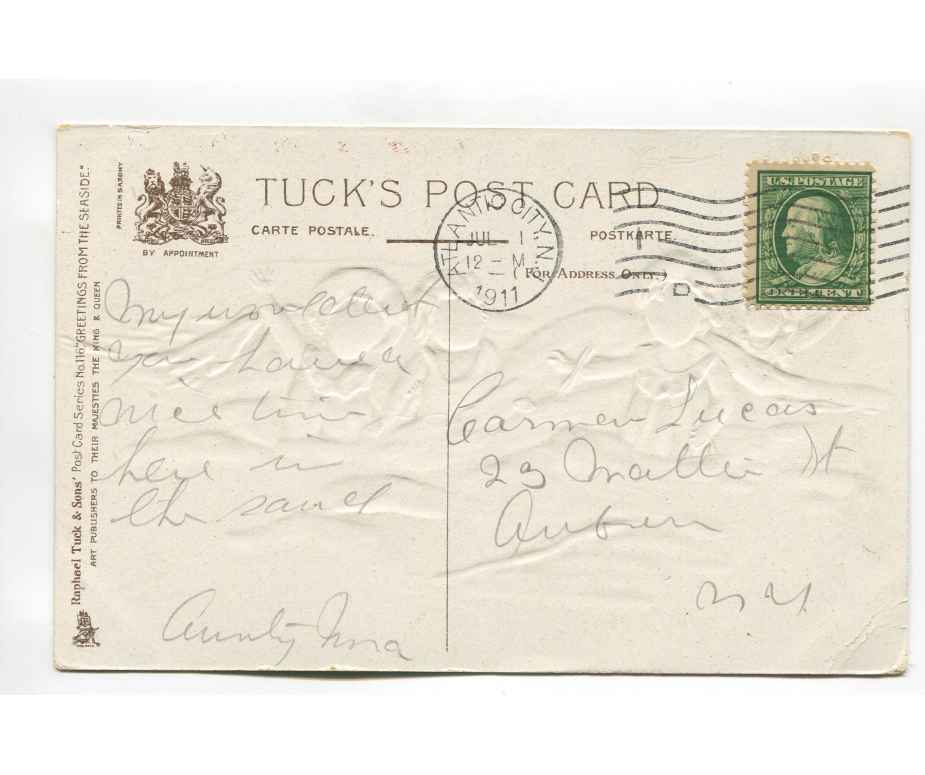 TUCK'S POST CARD
CARTE POSTALE.
POSTKARTE.
(FOR ADDRESS ONLY.)
PRINTED IN SAXONY
BY APPOINTMENT
Raphael Tuck & Sons' Post Card Series No. 116 "GREETINGS FROM THE SEASIDE."
ART PUBLISHERS TO THEIR MAJESTIES THE KING & QUEEN
ATLANTIC CITY, N.J.
JUL 1
12 - M
1911
D
U.S. POSTAGE
ONE CENT
My wouldnt
you have a
nice time
here in
the sand
Aunty
Carmen Lucas
23 St
Auburn
N Y